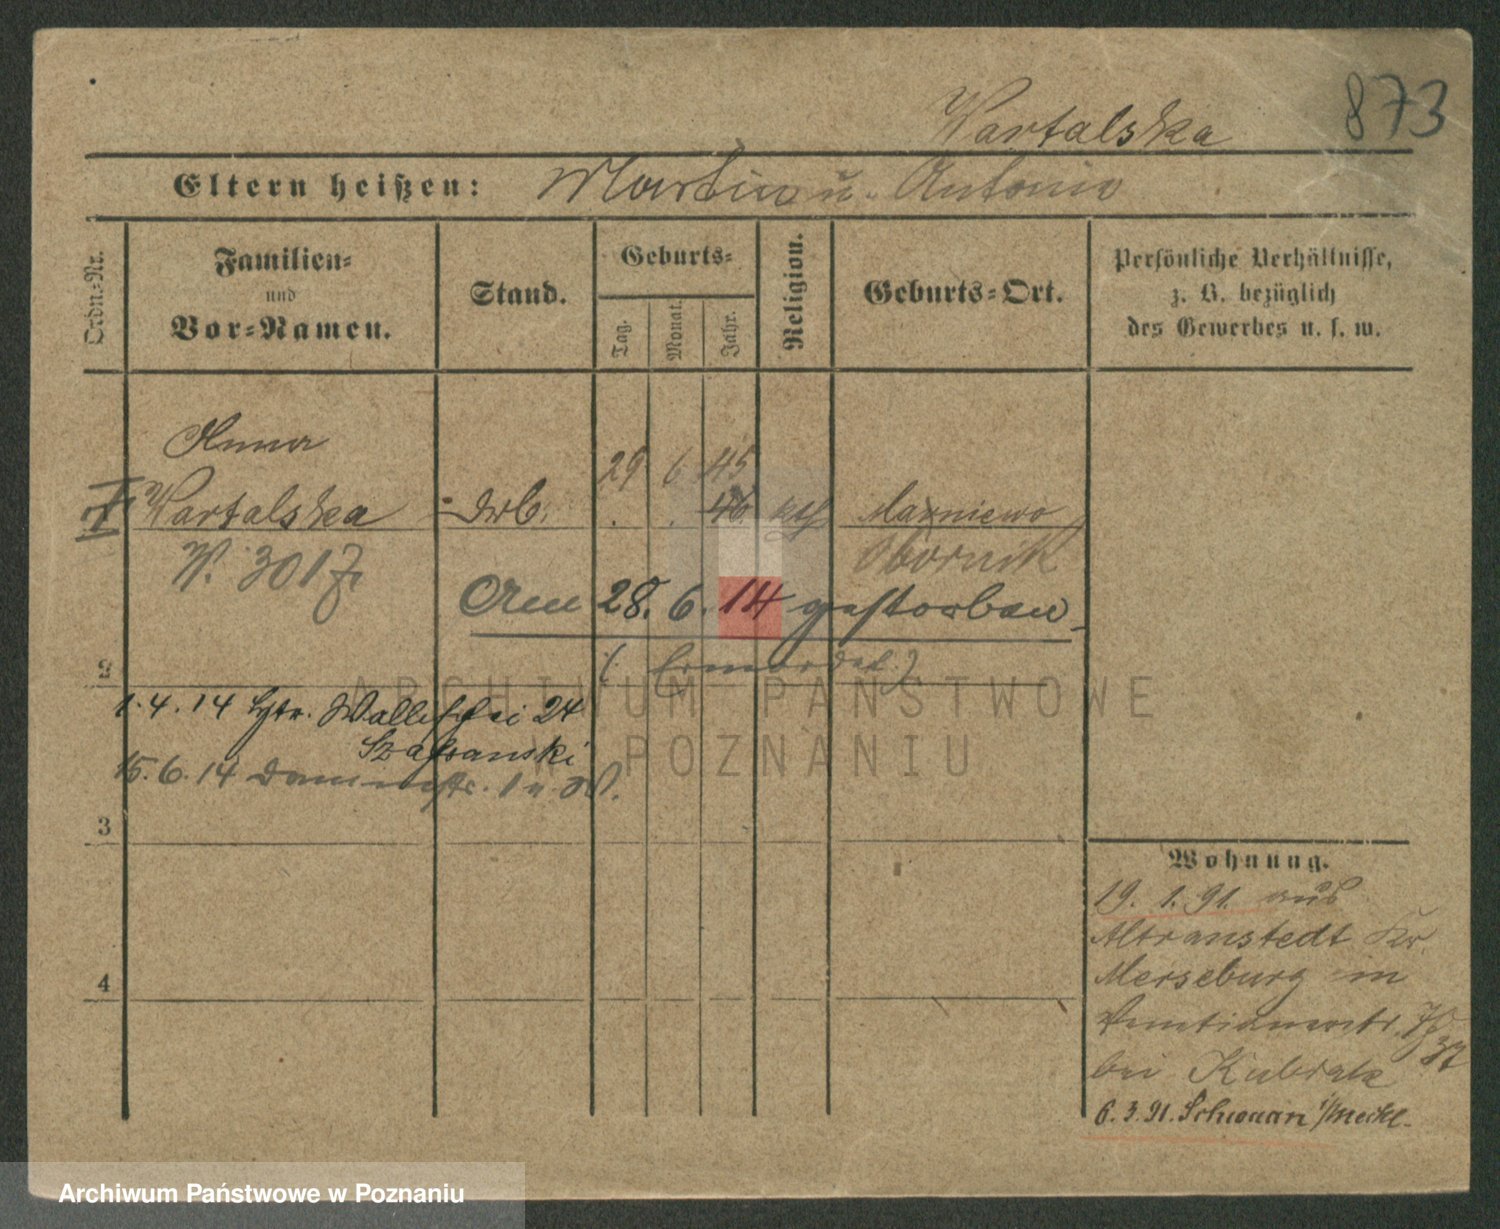 873
Wartalska
Eltern heißen: Martin u. Antonie
Ordn.-Nr.
Familien-
und
Vor-Namen.
Stand.
Geburts-
Tag.
Monat.
Jahr.
Religion.
Geburts-Ort.
Persönliche Verhältnisse,
z. B. bezüglich
des Gewerbes u. s. w.
Anna
29 6 45
I Wartalska Arb. 46 kth
W. 301 Obornik
Am 28. 6. 14 gestorben
2 (: Ermordet :)
1. 4. 14 Wallischei 24
Szafranski
15. 6. 14 Dammstr. 1 a. W.
3
4
Wohnung.
19. 1. 91. aus
Altranstedt Kr.
Merseburg in
37
bei
6. 3. 91. Schwaan i/Meckl.
ARCHIWUM PAŃSTWOWE
W POZNANIU
Archiwum Państwowe w Poznaniu